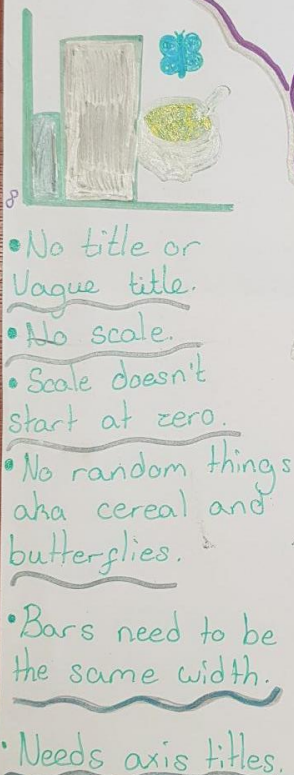 8
•No title or
Vague title.
•No scale.
•Scale doesn't
start at zero.
•No random things
aka cereal and
butterflies.
•Bars need to be
the same width.
•Needs axis titles.